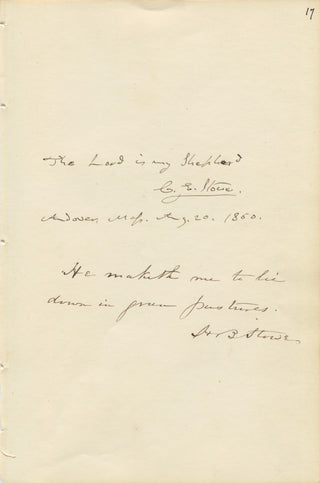 17
The Lord is my Shepherd
C. E. Stowe.
Andover, Mass. Aug. 20. 1860.
He maketh me to lie
down in green pastures.
H B Stowe